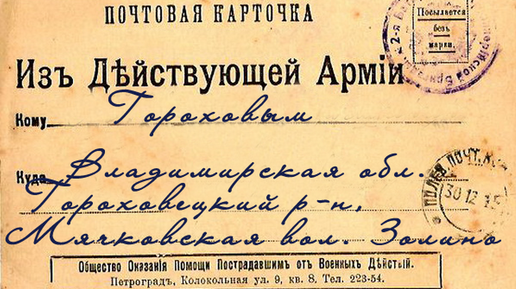 ПОЧТОВАЯ КАРТОЧКА
Посылается
безъ
марки.
Изъ Дѣйствующей Арміи
Кому Гороховым
Куда Владимирская обл.
Гороховецкий р-н,
Мячковская вол. Золино
30 12 15
Общество Оказанія Помощи Пострадавшимъ отъ Военныхъ Дѣйствій.
Петроградъ, Колокольная ул. 9, кв. 8. Тел. 223-54.